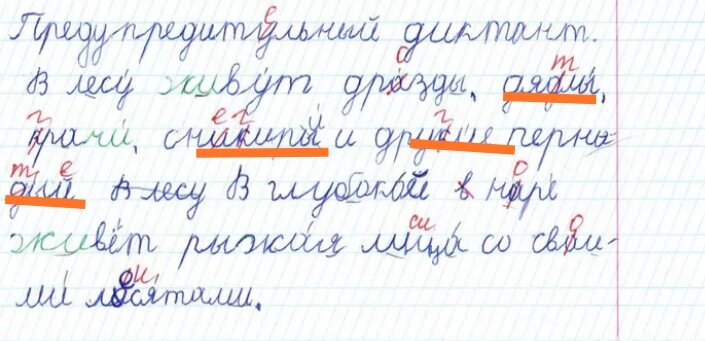 Предупредитильный диктант.
В лесу живут дразды, дядлы,
крачи, сникиры и друкие перна-
дий в лесу В глубокой наре
живёт рыжая лица со сваи-
ми лисятами.